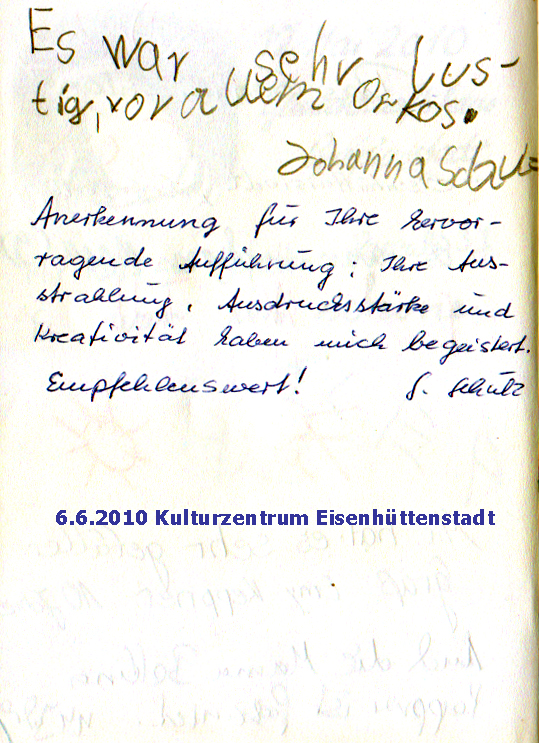 Es war sehr lus-
tig, vor allem Orkos.
Johanna
Anerkennung für Ihre hervor-
ragende Aufführung; Ihre Aus-
strahlung, Ausdrucksstärke und
Kreativität haben mich begeistert.
Empfehlenswert! S. Schütz
6.6.2010 Kulturzentrum Eisenhüttenstadt